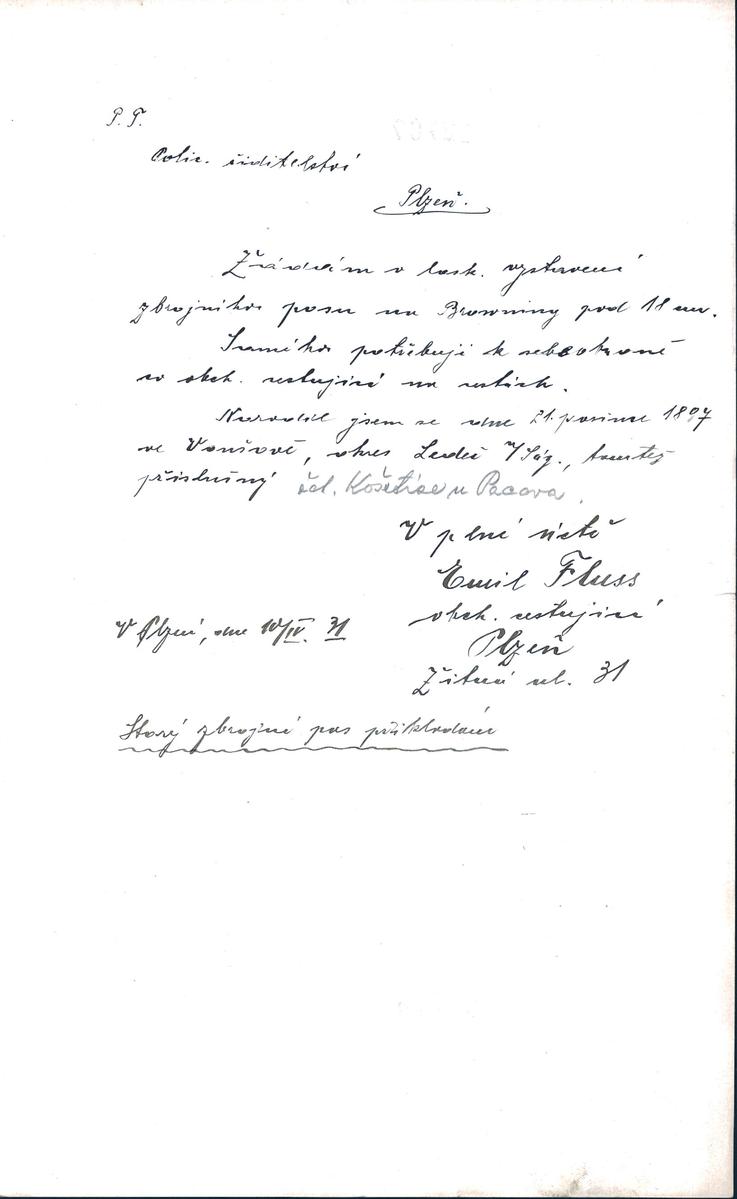 P. T.
Polic. ředitelství
Plzeň.
Žádám o lask. vystavení
zbrojního pasu na Browning pod 18 cm.
Samého potřebuji k sebeobraně
co obch. cestující na cestách.
Narodil jsem se dne 21. prosince 1897
ve Vonšově, okres Ledeč n/Sáz., tamtéž
příslušný Košetice u Pacova.
V plné úctě
Emil Fluss
obch. cestující
V Plzni, dne 10/IV. 31
Plzeň
Žitná ul. 31
Starý zbrojní pas přikládám